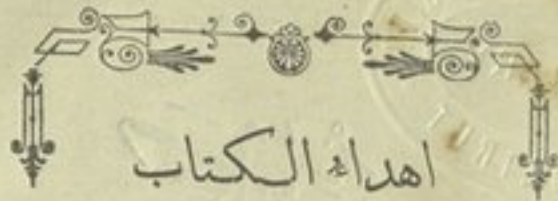 اهداء الكتاب